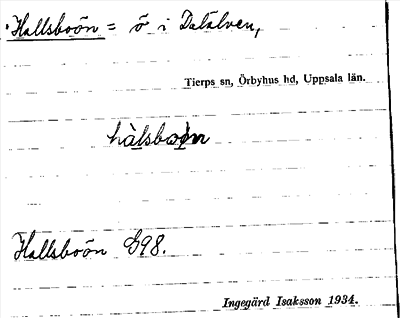 Hallsboön = ö i Dalälven,
Tierps sn, Örbyhus hd, Uppsala län.
Hallsboön G98.
Ingegärd Isaksson 1934.